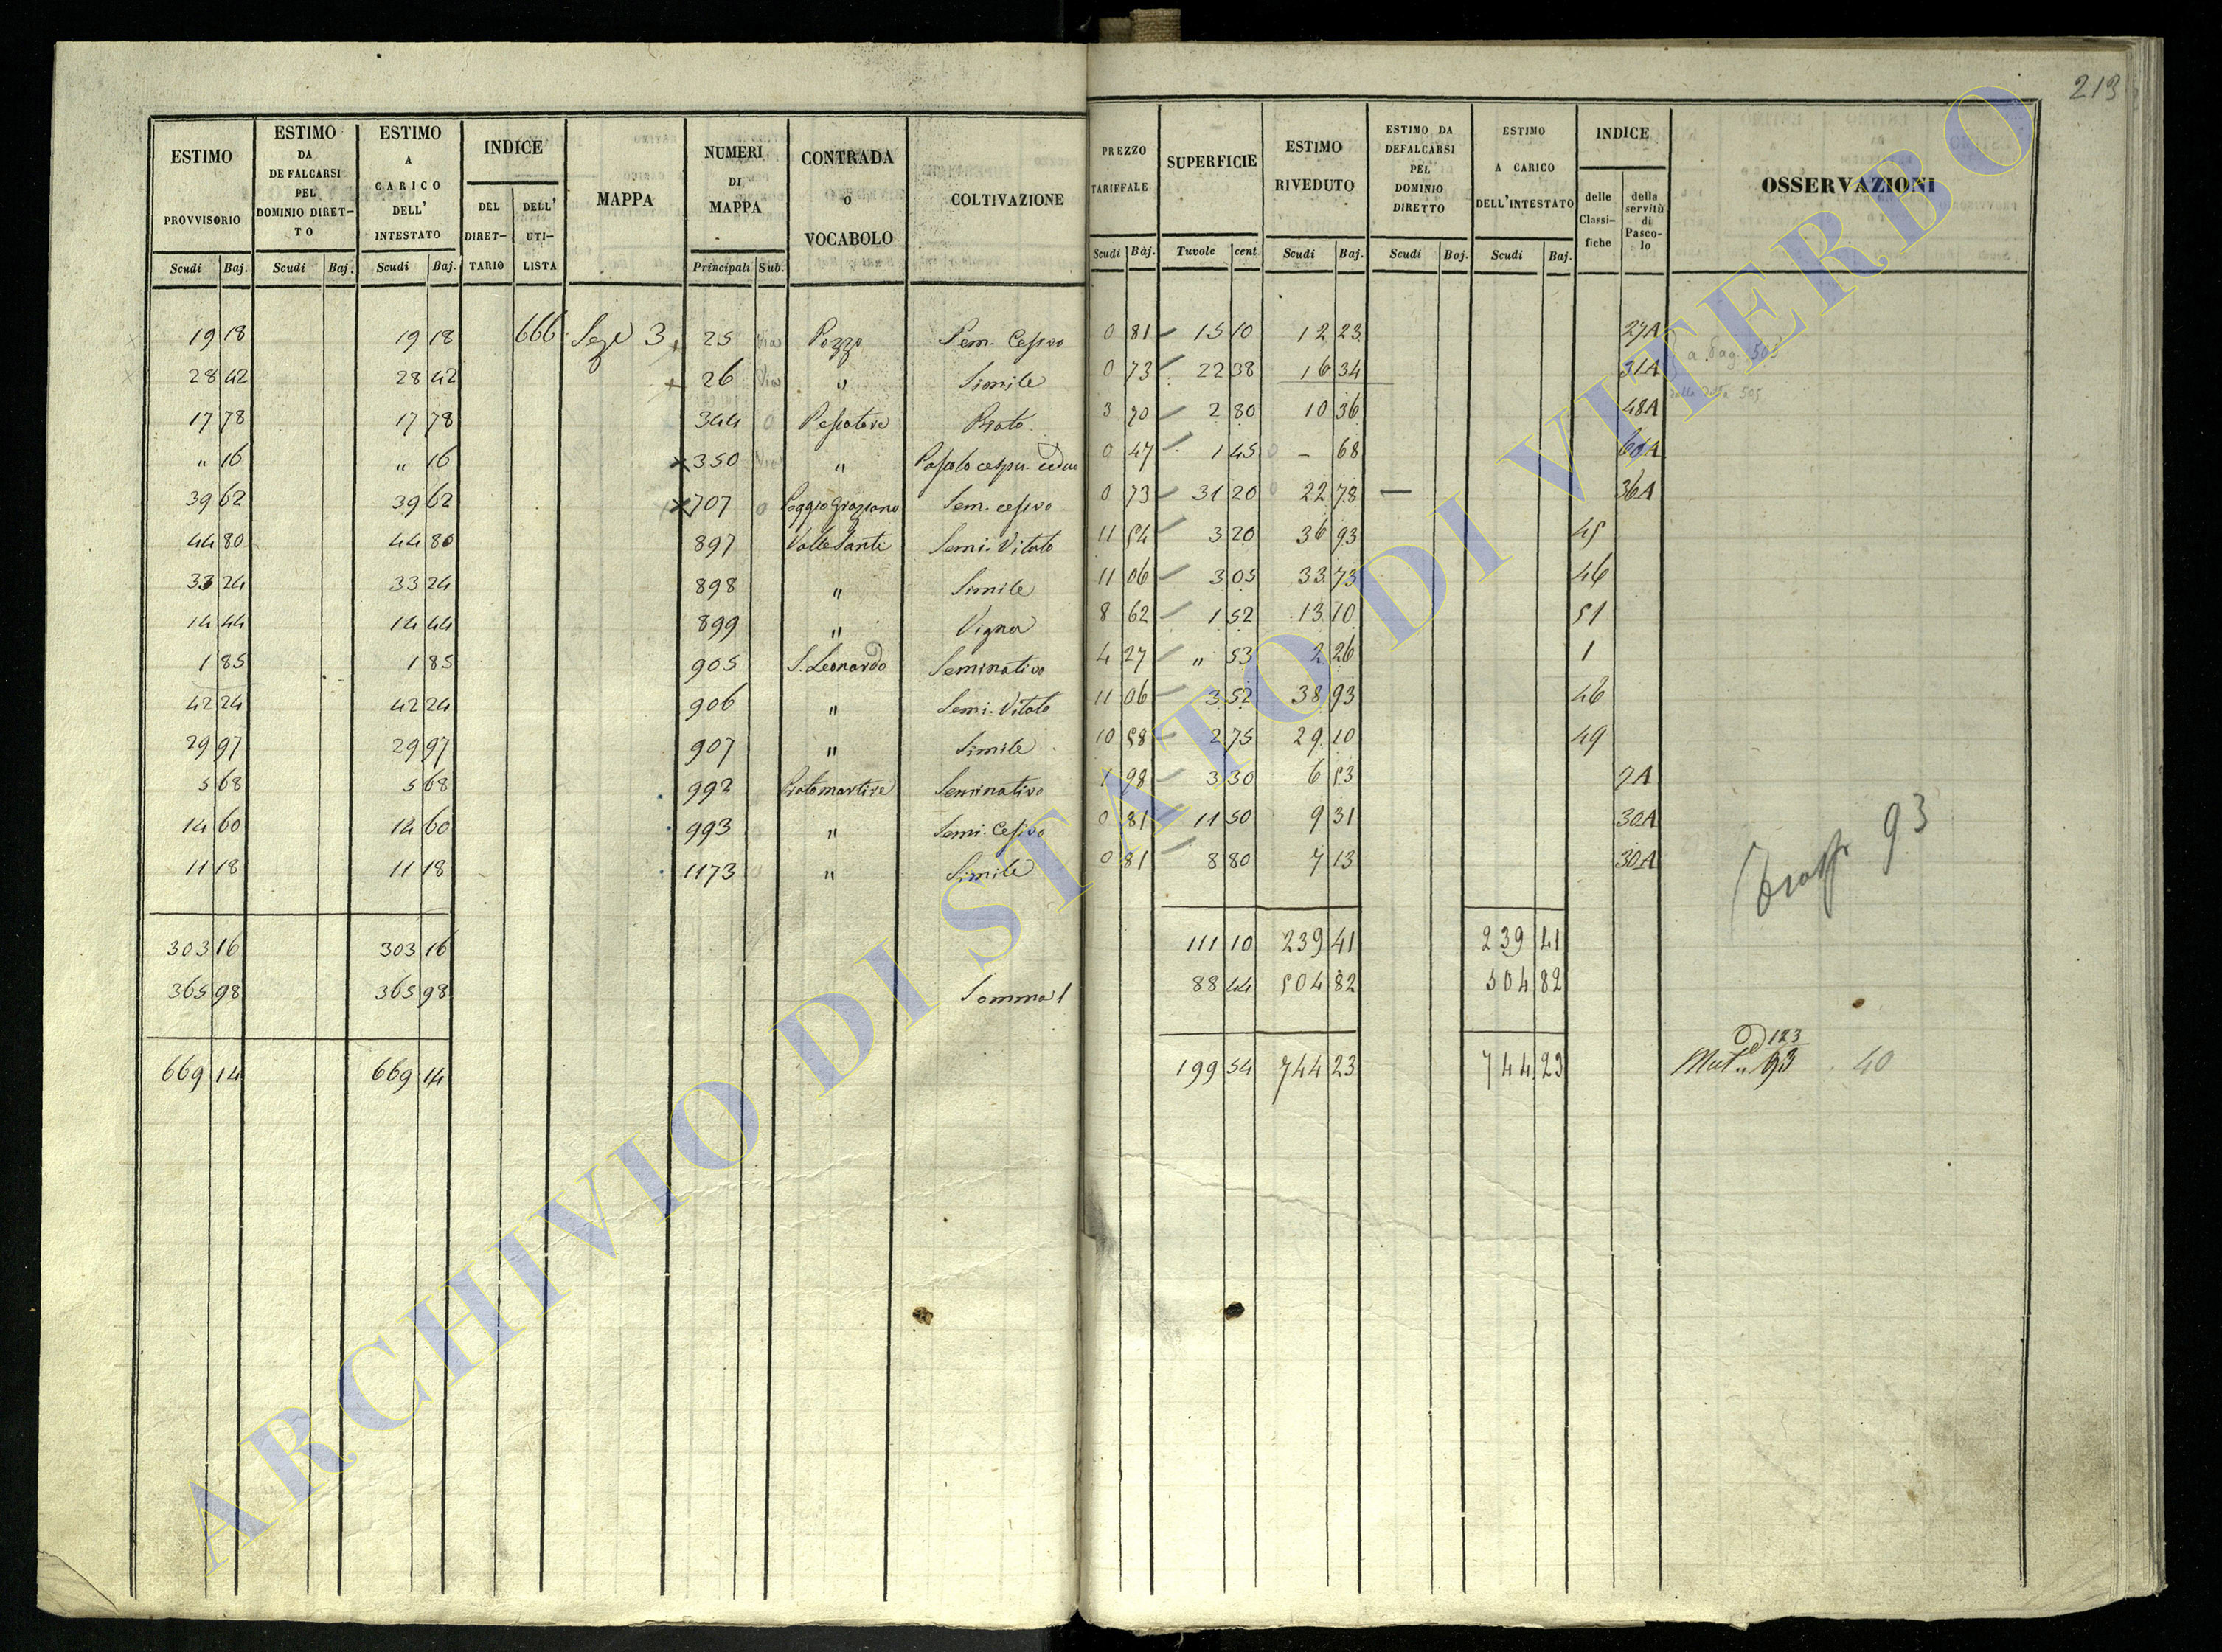 213
ESTIMO PROVVISORIO
ESTIMO DA DEFALCARSI PEL DOMINIO DIRETTO
ESTIMO A CARICO DELL' INTESTATO
INDICE
DEL DIRETTARIO
DELL' UTILISTA
MAPPA
NUMERI DI MAPPA
CONTRADA o VOCABOLO
COLTIVAZIONE
PREZZO TARIFFALE
SUPERFICIE
ESTIMO RIVEDUTO
ESTIMO DA DEFALCARSI PEL DOMINIO DIRETTO
ESTIMO A CARICO DELL'INTESTATO
INDICE
delle Classifiche
della servitù di Pascolo
OSSERVAZIONI
Scudi Baj. Scudi Baj. Scudi Baj. Principali Sub. Scudi Baj. Tuvole cent Scudi Baj. Scudi Baj. Scudi Baj.
19 18 19 18 666 Seze 3 25 Via Pozzo Sem. Cesivo 0 81 15 10 12 23 27A
28 42 28 42 26 Via " Simile 0 73 22 38 16 34 31A
a pag 503
17 78 17 78 344 0 Pescatore Prato 3 70 2 80 10 36 48A
505
" 16 " 16 350 Via " Pascolo cespu. ceduo 0 47 1 45 - 68 60A
39 62 39 62 707 0 Poggio Graziano Sem. cesivo 0 73 31 20 22 78 — 36A
44 80 44 80 897 Valle Santi Semi. Vitato 11 54 3 20 36 93 45
33 24 33 24 898 " Simile 11 06 3 05 33 73 46
14 44 14 44 899 " Vigna 8 62 1 52 13 10 51
1 85 1 85 905 S. Leonardo Seminativo 4 27 " 53 2 26 1
42 24 42 24 906 " Semi. Vitato 11 06 3 52 38 93 46
29 97 29 97 907 " Simile 10 58 2 75 29 10 49
5 68 5 68 992 Pratomartire Seminativo 1 98 3 30 6 53 7A
14 60 14 60 993 " Semi. Cesivo 0 81 11 50 9 31 30A
11 18 11 18 1173 " Simile 0 81 8 80 7 13 30A
93
303 16 303 16 111 10 239 41 239 41
365 98 365 98 Somma 88 44 504 82 504 82
669 14 669 14 199 54 744 23 744 23
123
Mut. 93 40
ARCHIVIO DI STATO DI VITERBO